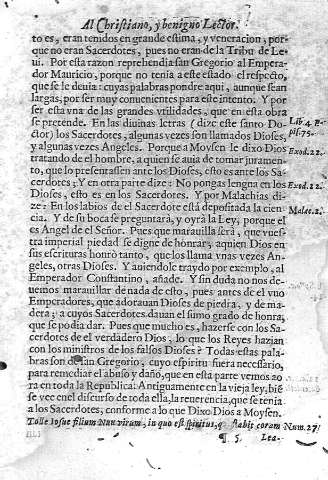 Al Christiano, y benigno Lector.
to es, eran tenidos en grande estima, y veneracion, por-
que no eran Sacerdotes, pues no eran de la Tribu de Le-
ui. Por esta razon reprehendia san Gregorio al Empera-
dor Mauricio, porque no tenia a este estado el respecto,
que se le deuia: cuyas palabras pondre aqui, aunque sean
largas, por ser muy conuenientes para este intento. Y por
ser esta vna de las grandes vtilidades, que en esta obra
se pretende. En las diuinas letras (dize este santo Do-
ctor) los Sacerdotes, algunas vezes son llamados Dioses,
y algunas vezes Angeles. Porque a Moysen le dixo Dios
tratando de el hombre, a quien se auia de tomar juramen-
to, que lo presentassen ante los Dioses, esto es ante los Sa-
cerdotes; Y en otra parte dize: No pongas lengua en los
Dioses, esto es en los Sacerdotes. Y por Malachias di-
ze: En los labios de el Sacerdote està depositada la cien-
cia. Y de su boca se preguntarà, y oyrà la Ley, porque el
es Angel de el Señor. Pues que marauilla serà, que vues-
tra imperial piedad se digne de honrar, a quien Dios en
sus escrituras honrò tanto, que los llama vnas vezes An-
geles, otras Dioses. Y auiendole traydo por exemplo, al
Emperador Constantino, añade. Y sin duda no nos de-
uemos marauillar de nada de esto, pues antes de el vuo
Emperadores, que adorauan Dioses de piedra, y de ma-
dera; a cuyos Sacerdotes dauan el sumo grado de honra,
que se podia dar. Pues que mucho es, hazerse con los Sa-
cerdotes de el verdadero Dios, lo que los Reyes hazian
con los ministros de los falsos Dioses? Todas estas pala-
bras son de san Gregorio, cuyo espiritu fuera necessario,
para remediar el abuso y daño, que en esta parte vemos ao
ra en toda la Republica: Antiguamente en la vieja ley, biē
se vee en el discurso de toda ella, la reuerencia, que se tenia
a los Sacerdotes, conforme a lo que Dixo Dios a Moysen.
Tolle Iosue filium Nun virum, in quo est spiritus, q̃ stabis coram
¶ 5. Lea-
Lib. 4. E-
pist. 75.
Exod. 22.
Exod. 22.
Malac. 2.
Num. 27